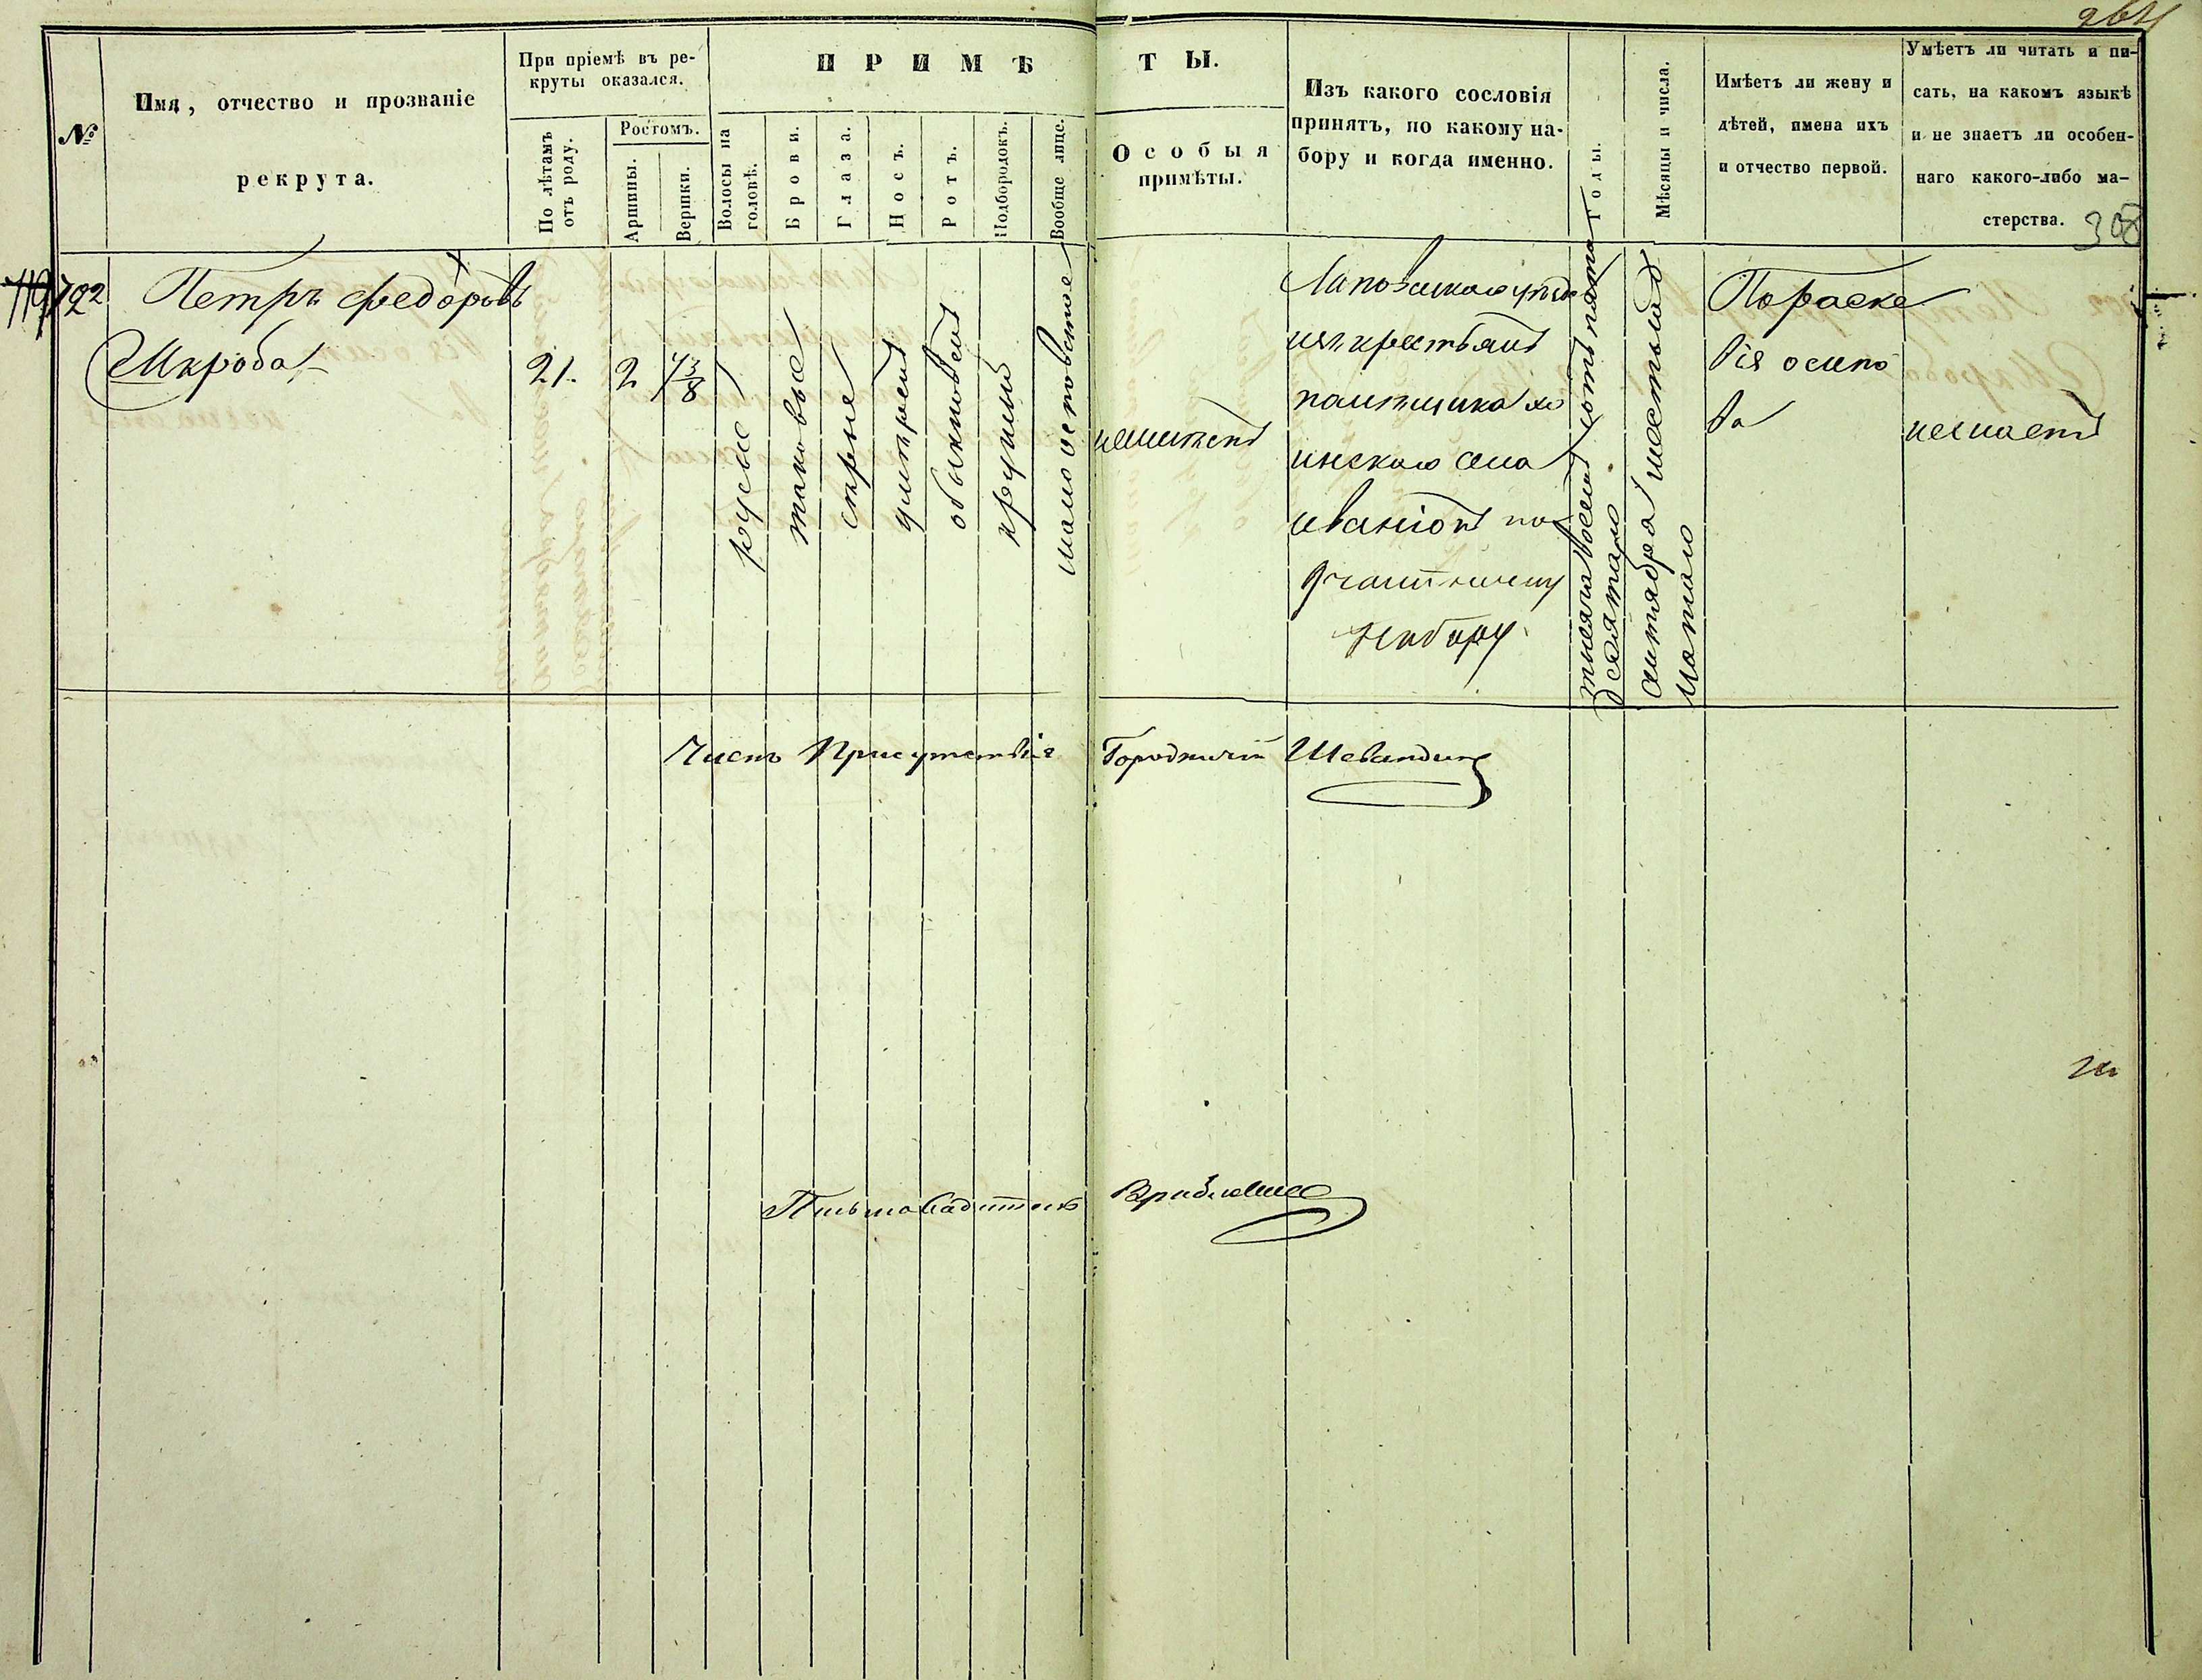 264
№
Имя, отчество и прозваніе
рекрута.
При пріемѣ въ ре-
круты оказался.
По лѣтамъ
отъ роду.
Ростомъ.
Аршины.
Вершки.
ПРИМѢ
ТЫ.
Волосы на
головѣ.
Брови.
Глаза.
Носъ.
Ротъ.
Подбородокъ.
Вообще лице.
Особыя
примѣты.
Изъ какого сословія
принятъ, по какому на-
бору и когда именно.
Годы.
Мѣсяцы и числа.
Имѣетъ ли жену и
дѣтей, имена ихъ
и отчество первой.
Умѣетъ ли читать и пи-
сать, на какомъ языкѣ
и не знаетъ ли особен-
наго какого-либо ма-
стерства.
308
792
Петръ Федоровъ
Шкроба
21.
2
4 3/8
русые
таковые
серые
умерен
обыкновен
круглый
мало осповатое
неимеет
уезда
из крестьян
помещика
села
по
набору
тысяча восем сотъ пять
десятаго
октября шестьнад
цатаго
Пораске
вія осипо
ва
незнает
Член Присутствія Городничій
Письмоводитель